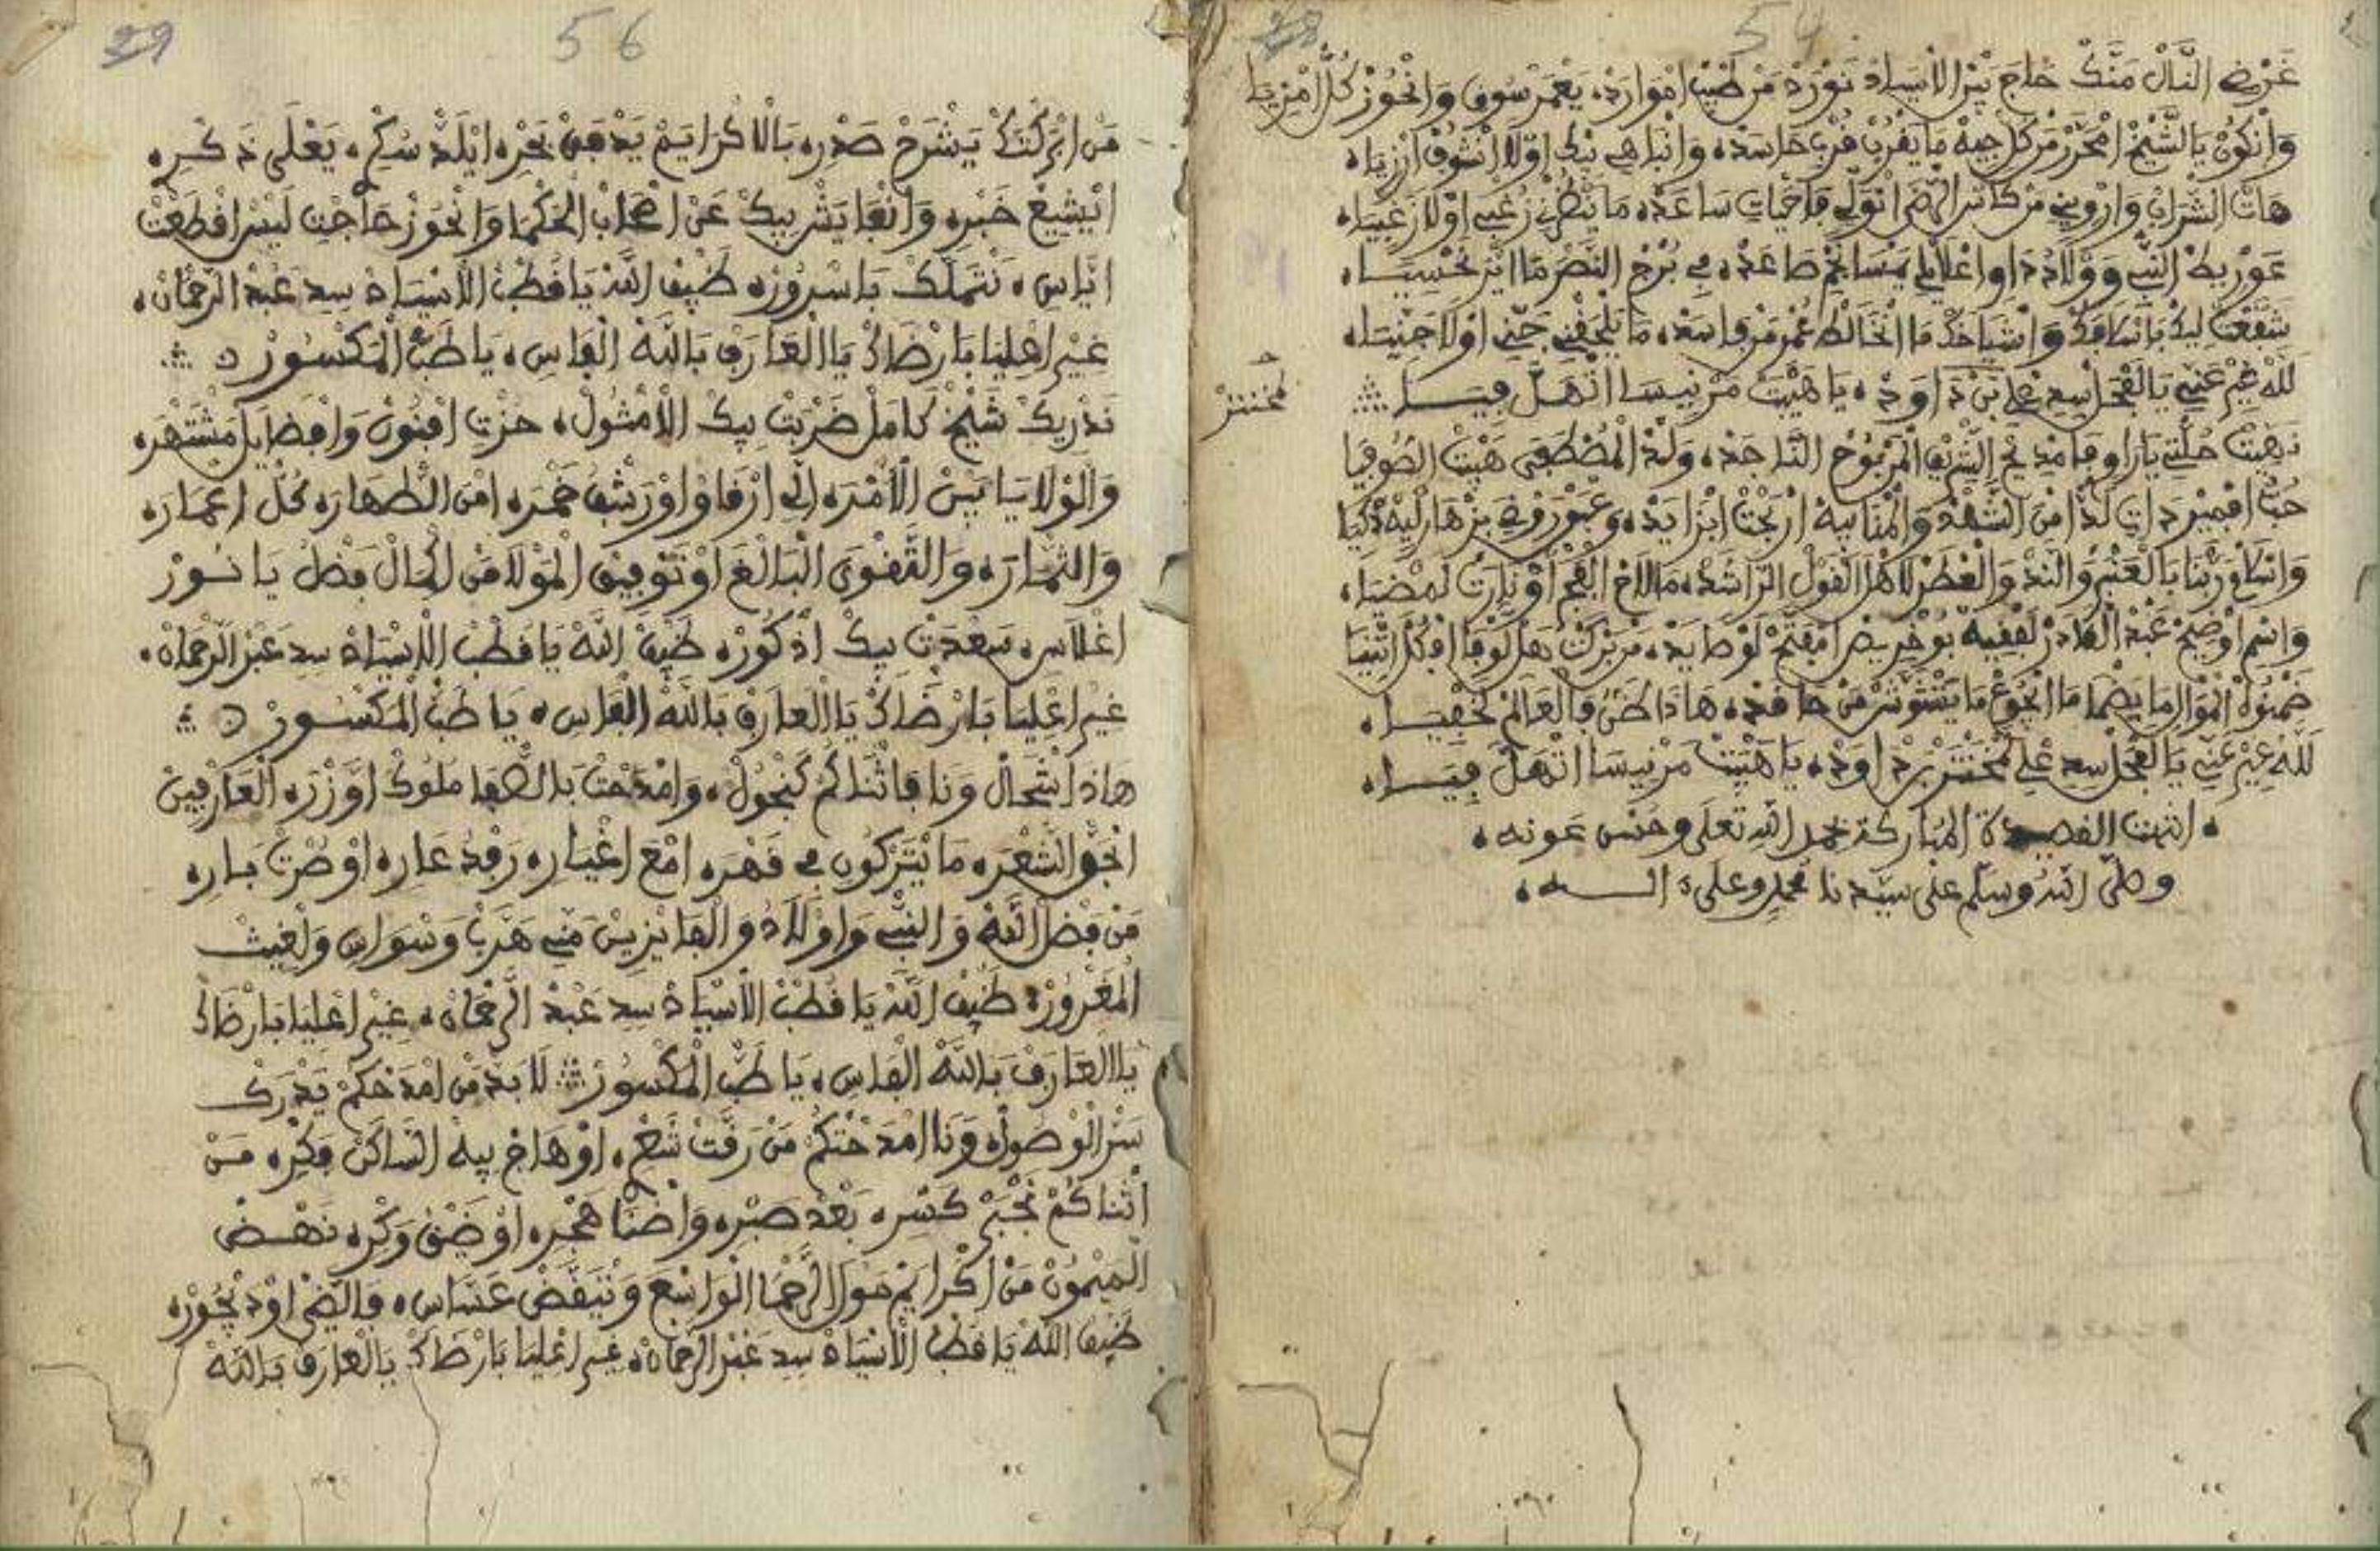 54
غرض النال منك حاج بين الاسياد نورد من طيب اموارده يعمر سوق وانحوز كل امزيا
وانكون يا الشيخ امحرر من كل جيه ما يقرب قرب حاسده وانباهي بيك اولا انشوف ارزيا
هات الشراب وارويني من كاس الرضى انولي فاحيات ساعده ما ينظرني زغبي اولا زغبيا
عوريط النبي وولادد او اعلامي بمسايخ صاعده في برج النصر ما اتر نحسيا
شفعت ليك باسلافك واشياخك ما انخالط غمر مرفاسده ما يلحفني جني اولا جنيا
لله غير عني يا الفحل سيد علي بن داود يا هيت مرنيسا اتهل فيا
محنتنز
نهيت حلتي يا راو فامديح الشريف المربوح التاجد ولد المصطفى هيت الصوفيا
حب افمير دات لذا من الشهد والمنابيه اربحت ابزايد وعبور وني بزهار ليه ذكيا
وانسلاو ربنا بالعنبر والند والعطر لاهل القول الراشد مالاح الفجر او نارت لمضيا
واسم اوضح عبد القادر لفقيه بوخريص امفتح لوصايد من بركت هل لوفا افكل اثنيا
ضمنوه الموال ما يضما ما ايجوع ما يتشوش من حافد هاذا ظن فالعالم لخفيا
لله غير عني يا الفحل سيد علي محنتنز بن داود يا هيت مرنيسا اتهل فيا
انتهت القصيدة المباركة بحمد الله تعلى وحسن عونه
وصلى الله وسلم على سيدنا محمد وعلى اله
29
56
من ابركتك يشرح صدره بالاكرايم يدفق بحره ايلذ سكره يعلى ذكره
ايشيع خبره وانعا يشربيك عن اصحاب الحكما وانحوز حاجت ليس افطعت
اياس نتملك باسروره ضيف الله يا قطب الاسياد سيد عبد الرحمان
غير اعليا بارضاك يا العارف بالله الفاس يا طب المكسور
ندريك شيخ كامل ضربت بيك الامثول حزت افنون وافضايل مشتهره
والولايا بين الامره الي ارقاو اورشف خمره امن الطهاره كل اعماره
والثماره والتقوى البالغ او توفيق المولا من الحال فضل يا نور
اغلاس سعدت بيك اذكوره ضيف الله يا قطب الاسياد سيد عبد الرحمان
غير اعليا بارضاك يا العارف بالله الفاس يا طب المكسور
هاذا شحال ونا فاثناكم كنجول وامدحت بالصفا ملوك اوزره العارفين
انجو الشعره ما يتركون في قهره امع اغياره رفد عاره اوصرت باره
من فضل الله والنبي واولاد والفايزين مني هرب وسواس ولغيت
المغرور ضيف الله يا قطب الاسياد سيد عبد الرحمان غير اعليا بارضاك
يا العارف بالله الفاس يا طب المكسور لابد من امدحكم يدرك
سر الوصول ونا امدحتكم من رقت شعر او هاج بيه الساكن فكره من
اثناكم نجبر كسره بعد صبره واضنا هجره اوضيق وكره نهض
الميمون من اكرايم مولا الرحما الواسع ونتيقض عساس فالضي اود يجوره
ضيف الله يا قطب الاسياد سيد عبد الرحمان غير اعليا بارضاك يا العارف بالله